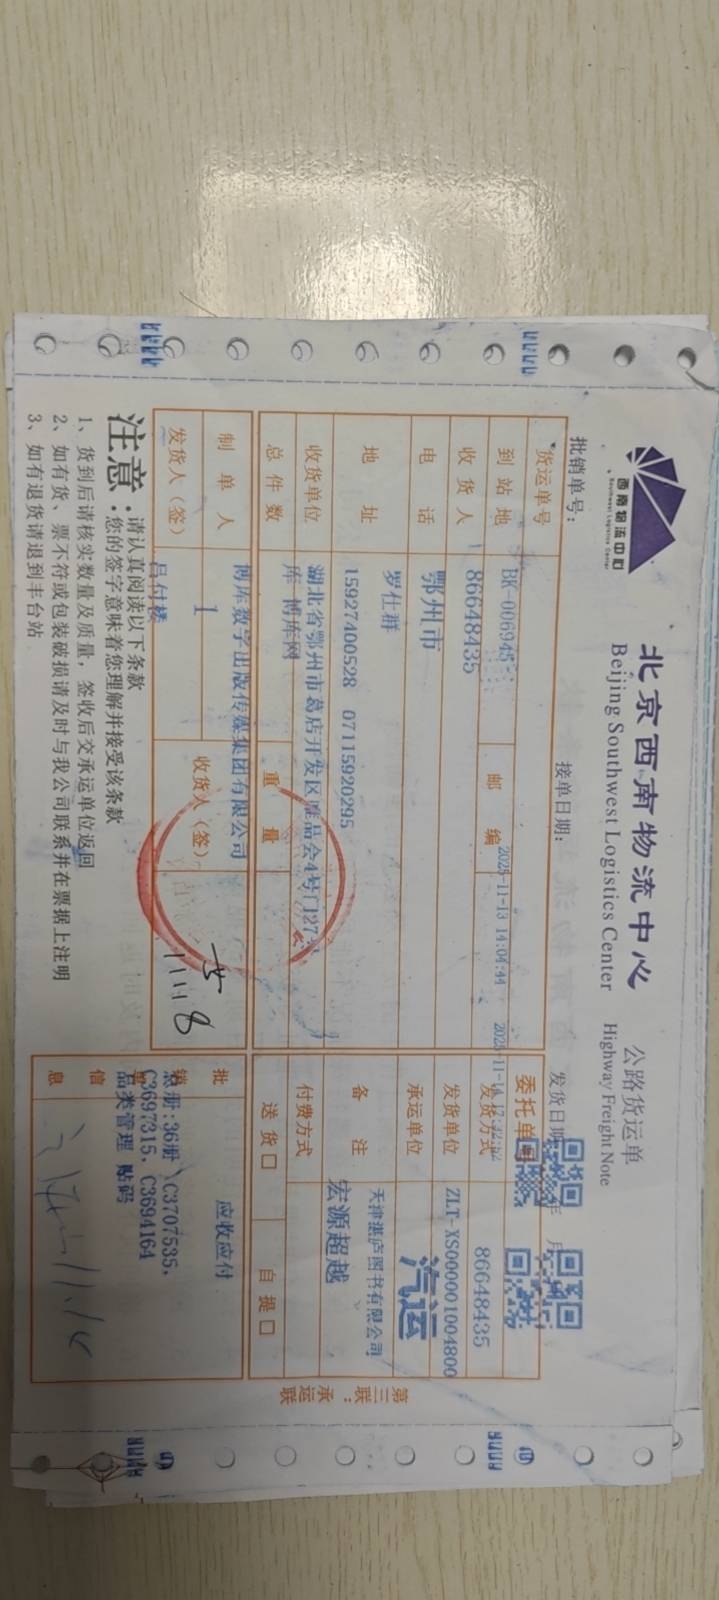 西南物流中心
Southwest Logistics Center
北京西南物流中心
Beijing Southwest Logistics Center
公路货运单
Highway Freight Note
批销单号：
接单日期：
2025-11-13 14:04:44
发货日期
年 月
货运单号
BK-006945
到站地
86648435
邮 编
收货人
鄂州市
电 话
罗仕群
地 址
15927400528 07115920295
收货单位
湖北省鄂州市葛店开发区唯品会4号门27号
库 博库网
总件数
重 量
博库数字出版传媒集团有限公司
制单人
1
收货人（签）
发货人（签）
吕付楼
11.18
委托单
86648435
发货方式
ZLT-XS000001004800
发货单位
汽运
承运单位
天津湛庐图书有限公司
备 注
宏源超越
付费方式
送货□
自提□
应收应付
批销单信息
总册:36册 \C3707535、
C3697315、C3694164
品类管理 贴码
第三联：承运联
注意：
请认真阅读以下条款
您的签字意味着您理解并接受该条款
1、货到后请核实数量及质量，签收后交承运单位返回
2、如有货、票不符或包装破损请及时与我公司联系并在票据上注明
3、如有退货请退到丰台站